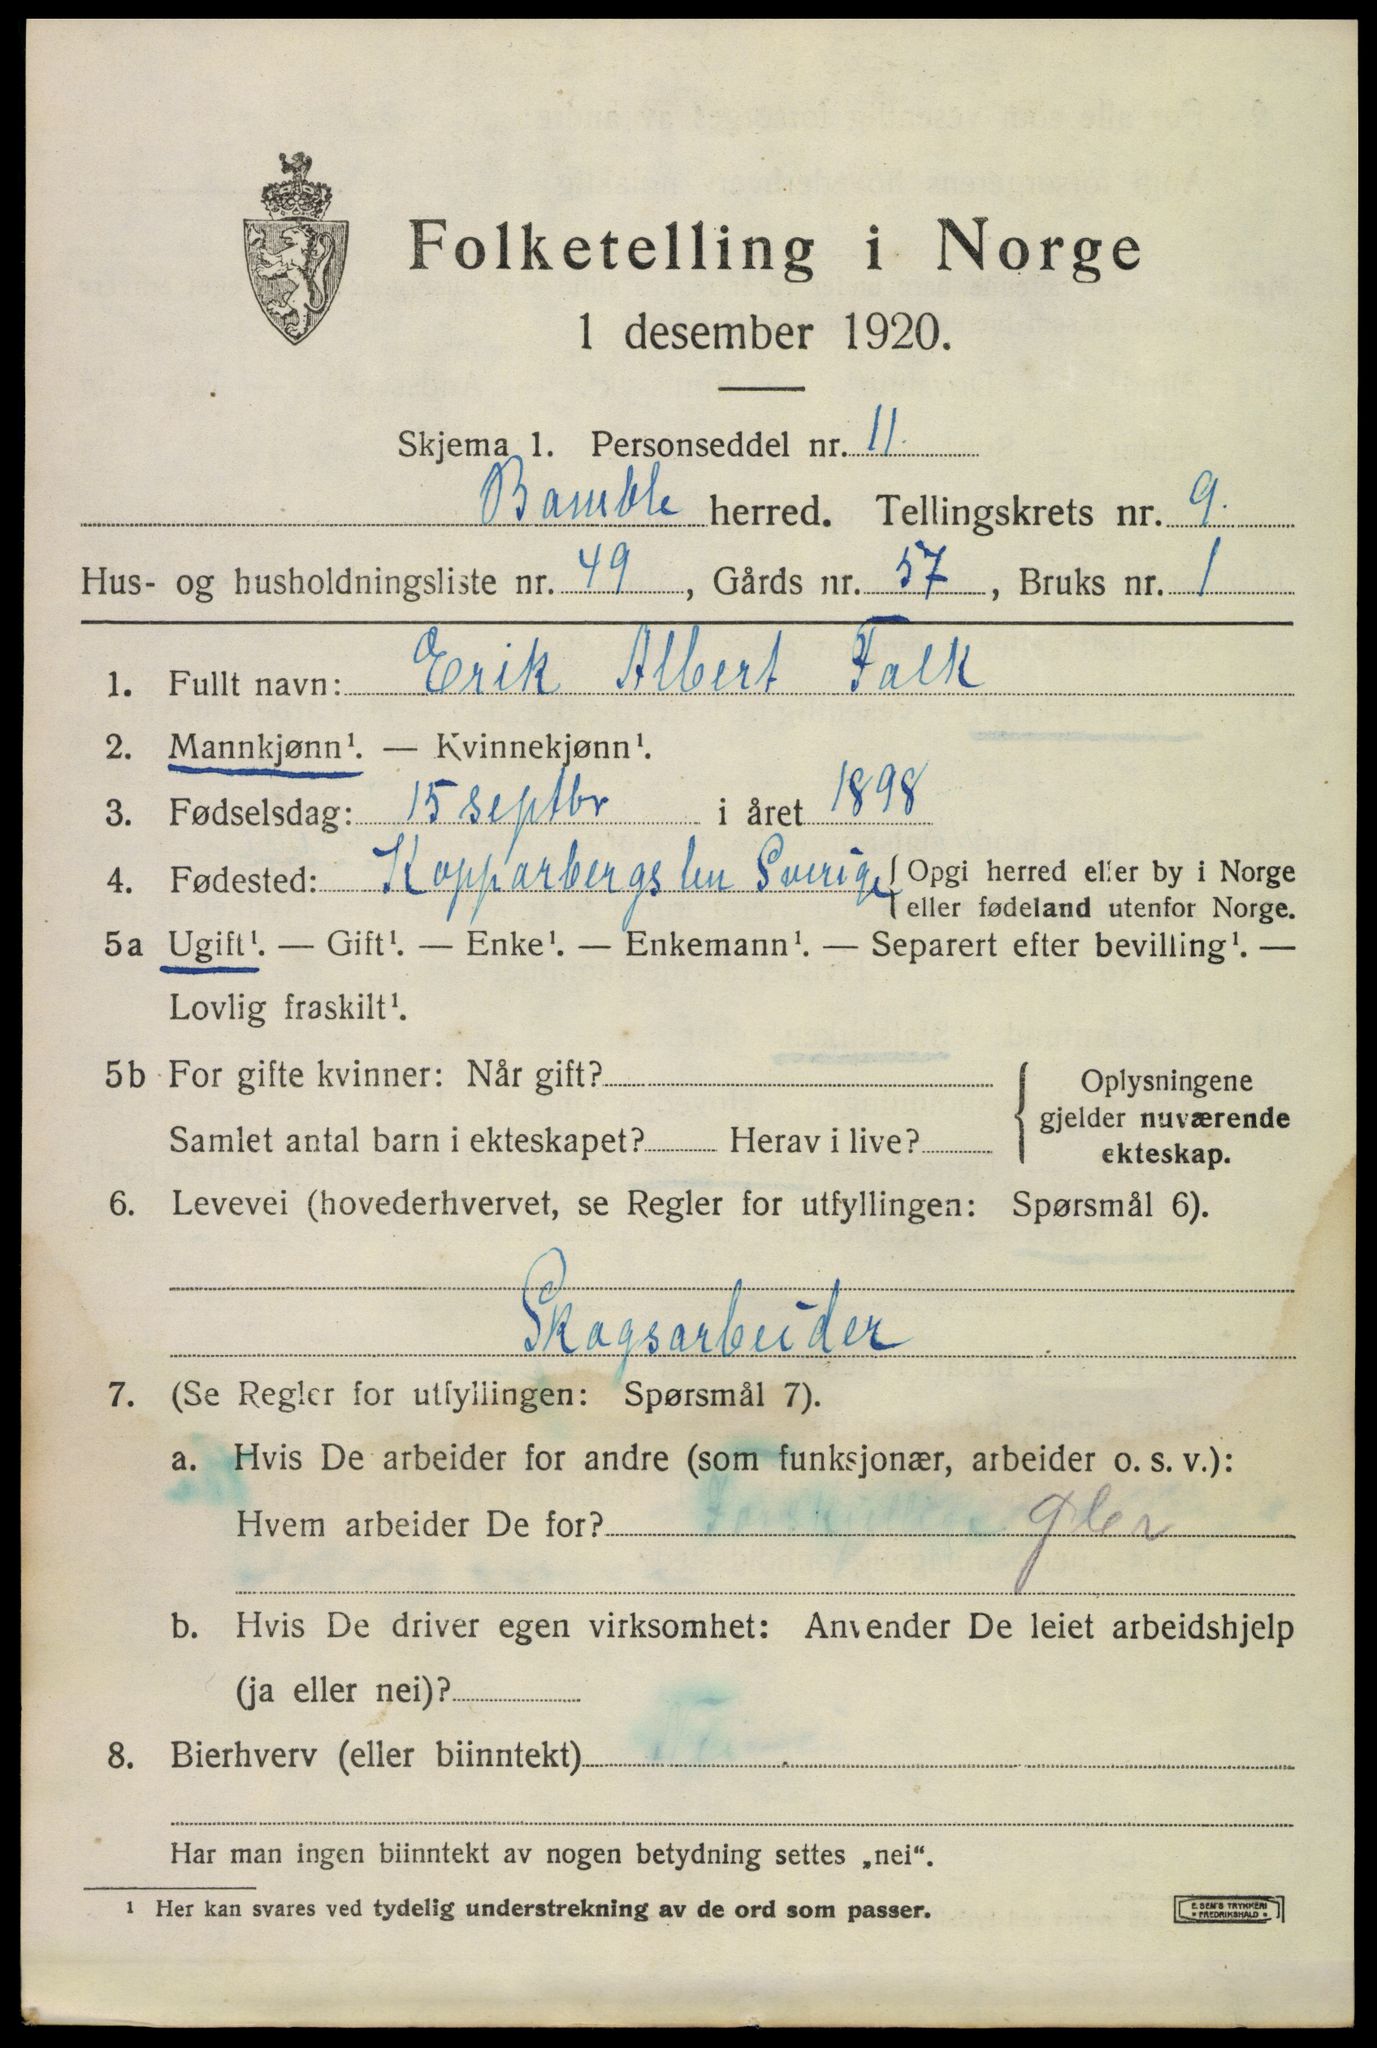 Folketelling i Norge
1 desember 1920.
Skjema 1. Personseddel nr. 11.
Bamble herred. Tellingskrets nr. 9.
Hus- og husholdningsliste nr. 49, Gårds nr. 57, Bruks nr. 1
1. Fullt navn: Erik Albert Falk
2. Mannkjønn¹. — Kvinnekjønn¹.
3. Fødselsdag: 15 septbr i året 1898
4. Fødested: Kopparbergs len Sverige { Opgi herred eller by i Norge
eller fødeland utenfor Norge.
5a Ugift¹. — Gift¹. — Enke¹. — Enkemann¹. — Separert efter bevilling¹. —
Lovlig fraskilt¹.
5b For gifte kvinner: Når gift?
Samlet antal barn i ekteskapet? Herav i live?
{ Oplysningene
gjelder nuværende
ekteskap.
6. Levevei (hovederhvervet, se Regler for utfyllingen: Spørsmål 6).
Skogsarbeider
7. (Se Regler for utfyllingen: Spørsmål 7).
a. Hvis De arbeider for andre (som funksjonær, arbeider o. s. v.):
Hvem arbeider De for? Forskjellige
b. Hvis De driver egen virksomhet: Anvender De leiet arbeidshjelp
(ja eller nei)?
8. Bierhverv (eller biinntekt) Nei
Har man ingen biinntekt av nogen betydning settes „nei“.
¹ Her kan svares ved tydelig understrekning av de ord som passer.
E. SEM'S TRYKKERI
FREDRIKSHALD